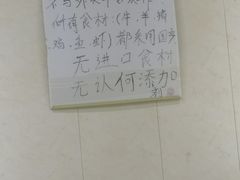 所有食材:(牛.羊.猪
.鸡.鱼.虾)都采用国产
无进口食材
无认何添加